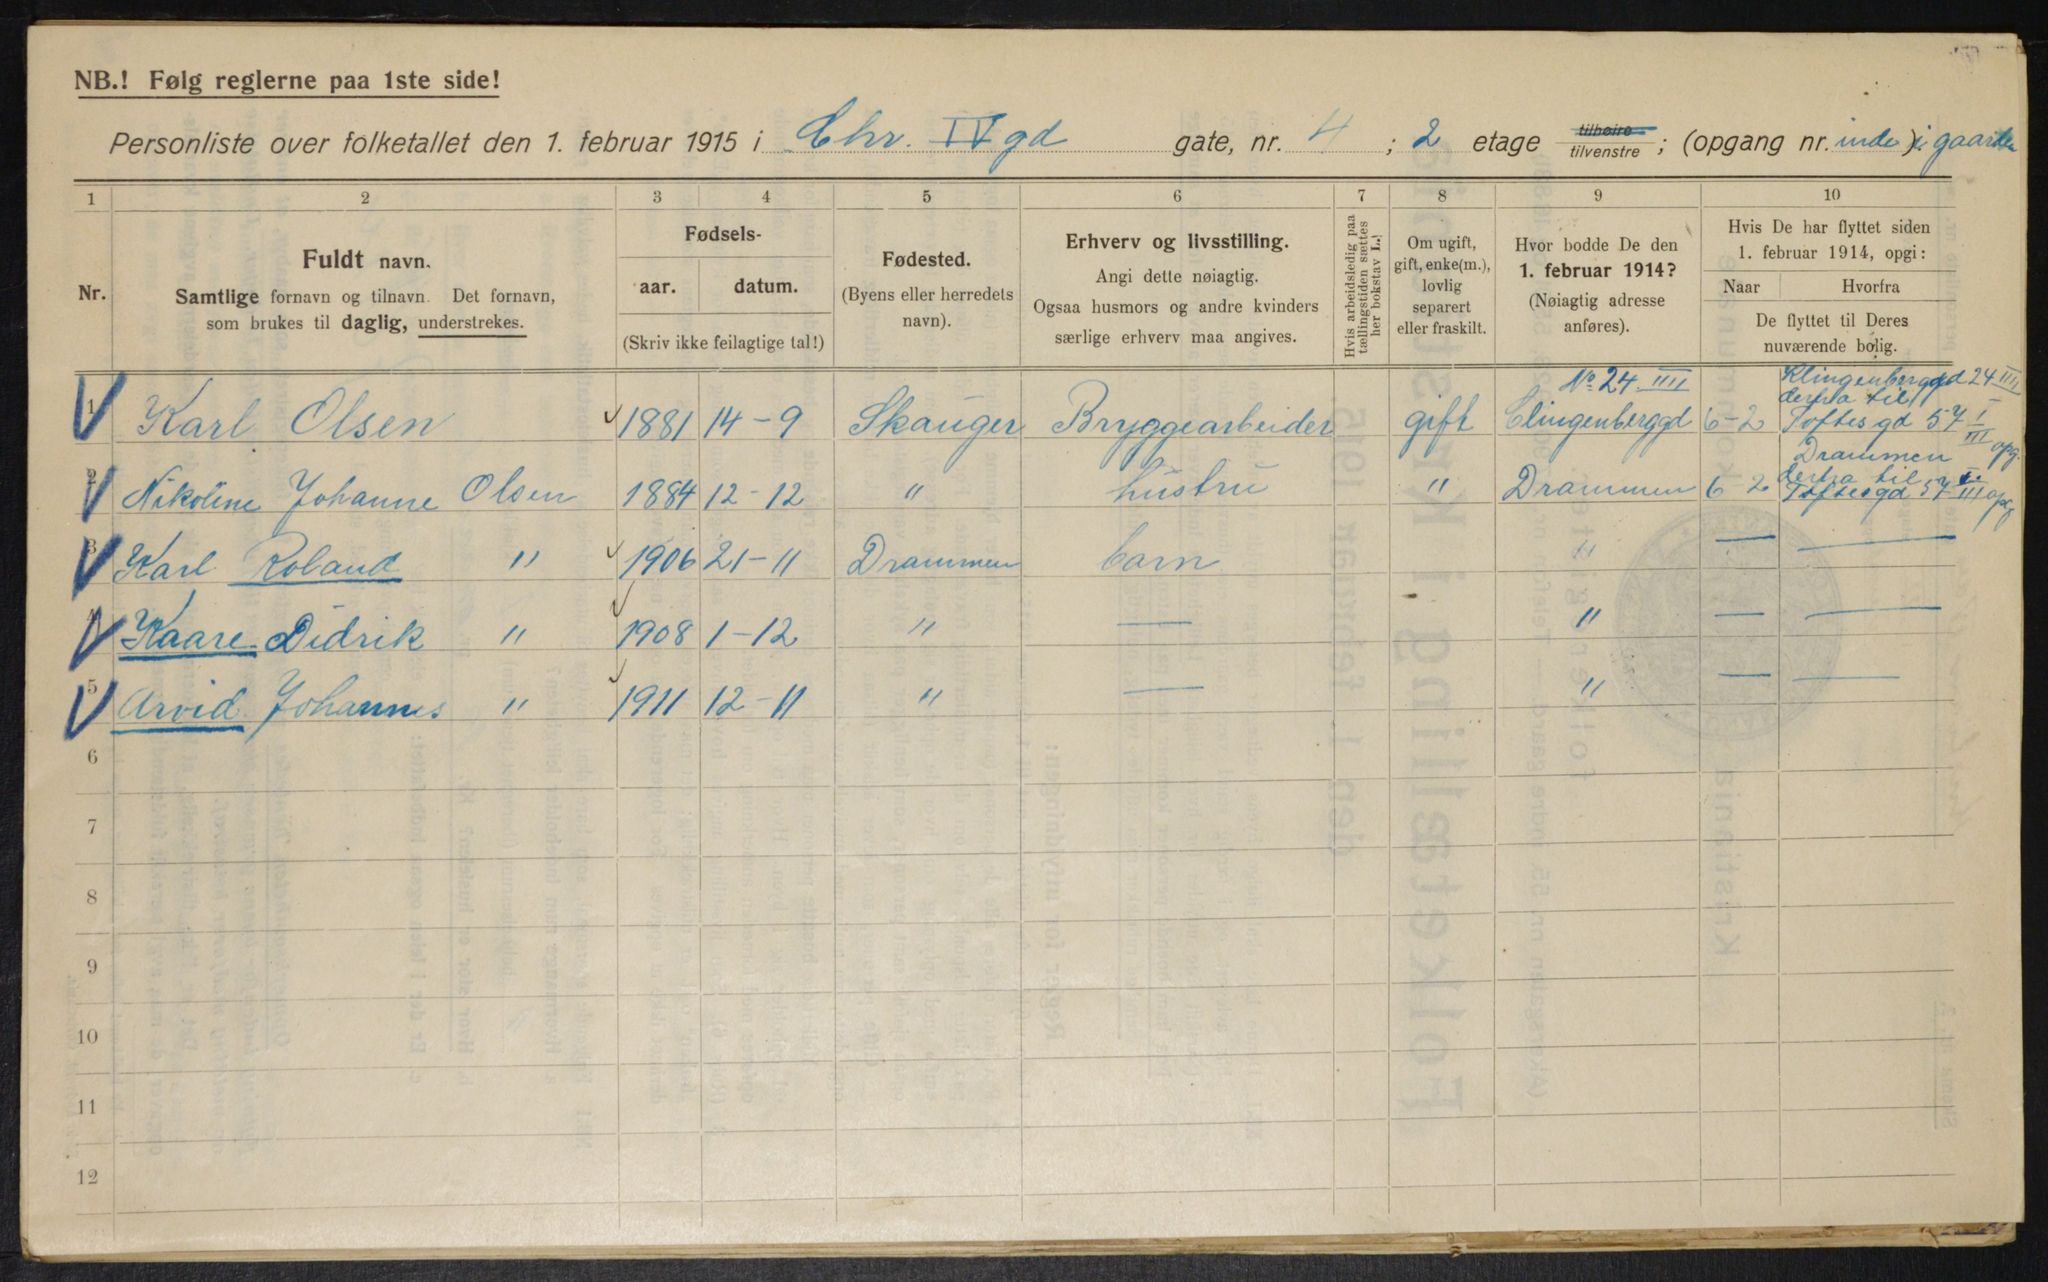 NB.! Følg reglerne paa 1ste side!
Personliste over folketallet den 1. februar 1915 i Chr. IV gd gate, nr. 4 ; 2 etage tilhøire tilvenstre ; (opgang nr. inde ) i gaarden
1 2 3 4 5 6 7 8 9 10
Nr.
Fuldt navn.
Samtlige fornavn og tilnavn. Det fornavn,
som brukes til daglig, understrekes.
Fødsels-
aar. datum.
(Skriv ikke feilagtige tal!)
Fødested.
(Byens eller herredets
navn).
Erhverv og livsstilling.
Angi dette nøiagtig.
Ogsaa husmors og andre kvinders
særlige erhverv maa angives.
Hvis arbeidsledig paa
tællingstiden sættes
her bokstav L.!
Om ugift,
gift, enke(m.),
lovlig
separert
eller fraskilt.
Hvor bodde De den
1. februar 1914?
(Nøiagtig adresse
anføres).
Hvis De har flyttet siden
1. februar 1914, opgi:
Naar Hvorfra
De flyttet til Deres
nuværende bolig.
1 Karl Olsen 1881 14-9 Skauger Bryggearbeider gift No 24 IIII Clingenberggd 6-2 Klingenberggd 24 IIII
derfra til
Toftes gd 57 I III opg.
2 Nikoline Johanne Olsen 1884 12-12 " hustru " Drammen 6 2 Drammen
derfra til
Toftesgd 57 III opg
3 Karl Roland " 1906 21-11 Drammen barn " — —
4 Kaare Didrik " 1908 1-12 " — " — —
5 Arvid Johannes " 1911 12-11 " — " — —
6
7
8
9
10
11
12